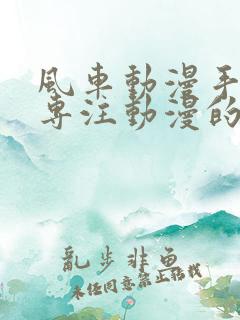 風車動漫手
專注動漫的
亂步非魚
未經同意禁止轉載